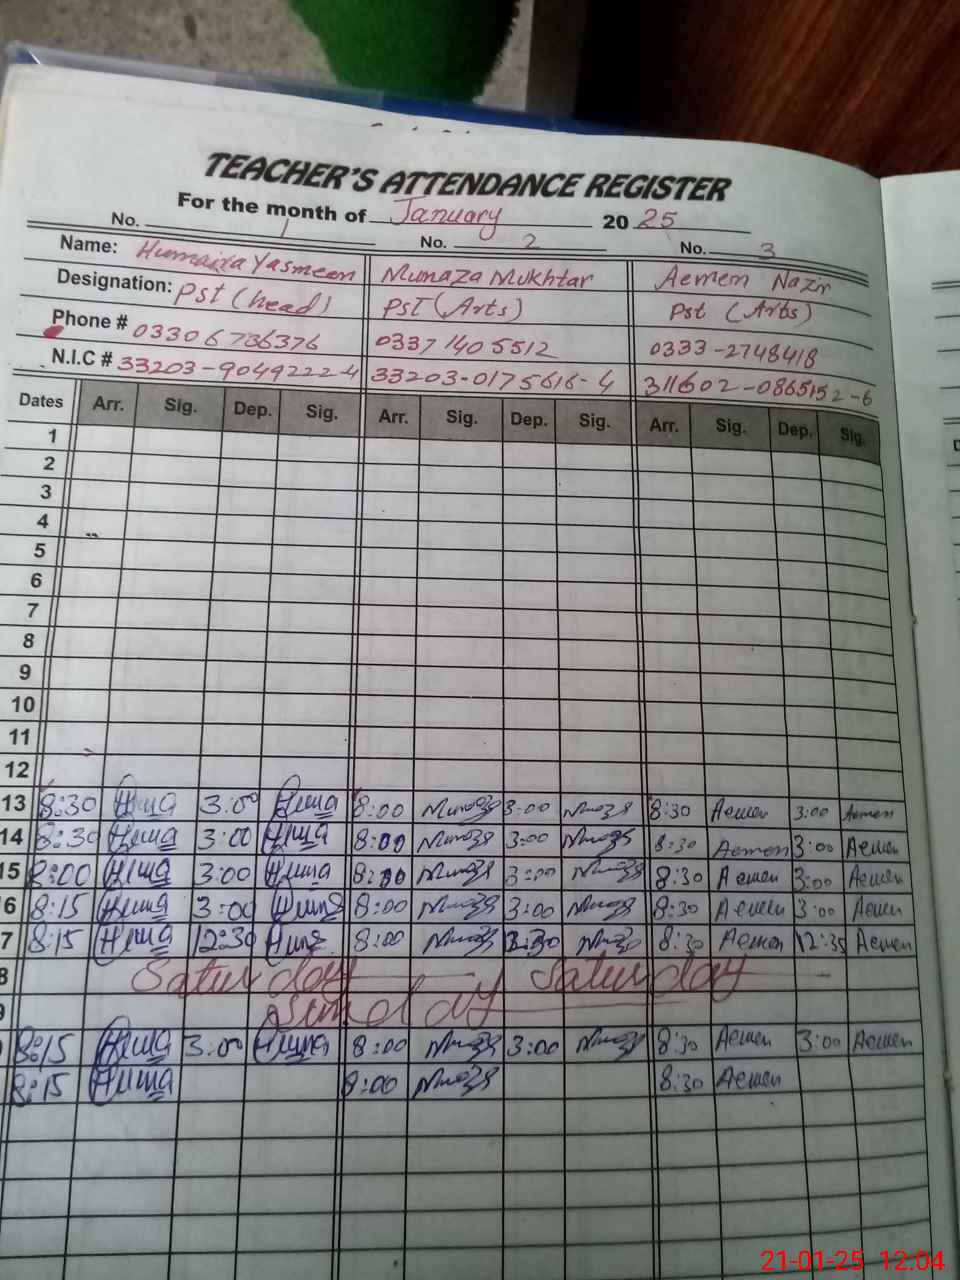 TEACHER'S ATTENDANCE REGISTER
For the month of January 2025
No. 1 No. 2 No. 3
Name: Humaira Yasmeen Munaza Mukhtar Aemen Nazir
Designation: Pst (head) PST (Arts) Pst (Arts)
Phone # 03306736376 0337 1405512 0333-2748418
N.I.C # 33203-9049222-4 33203-0175616-4 311602-0865152-6
Dates Arr. Sig. Dep. Sig. Arr. Sig. Dep. Sig. Arr. Sig. Dep. Sig.
1
2
3
4
5
6
7
8
9
10
11
12
13 8:30 Huma 3:00 Huma 8:00 Munaza 3:00 Munaza 8:30 Aemen 3:00 Aemen
14 8:30 Huma 3:00 Huma 8:00 Munaza 3:00 Munaza 8:30 Aemen 3:00 Aemen
15 8:00 Huma 3:00 Huma 8:00 Munaza 3:00 Munaza 8:30 Aemen 3:00 Aemen
6 8:15 Huma 3:00 Huma 8:00 Munaza 3:00 Munaza 8:30 Aemen 3:00 Aemen
7 8:15 Huma 12:30 Huma 8:00 Munaza Munaza 8:30 Aemen 12:35 Aemen
8 Saturday Saturday
9 Sunday
8:15 Huma 3:00 Huma 8:00 Munaza 3:00 Munaza 8:30 Aemen 3:00 Aemen
8:15 Huma 8:00 Munaza 8:30 Aemen
21-01-25 12:04